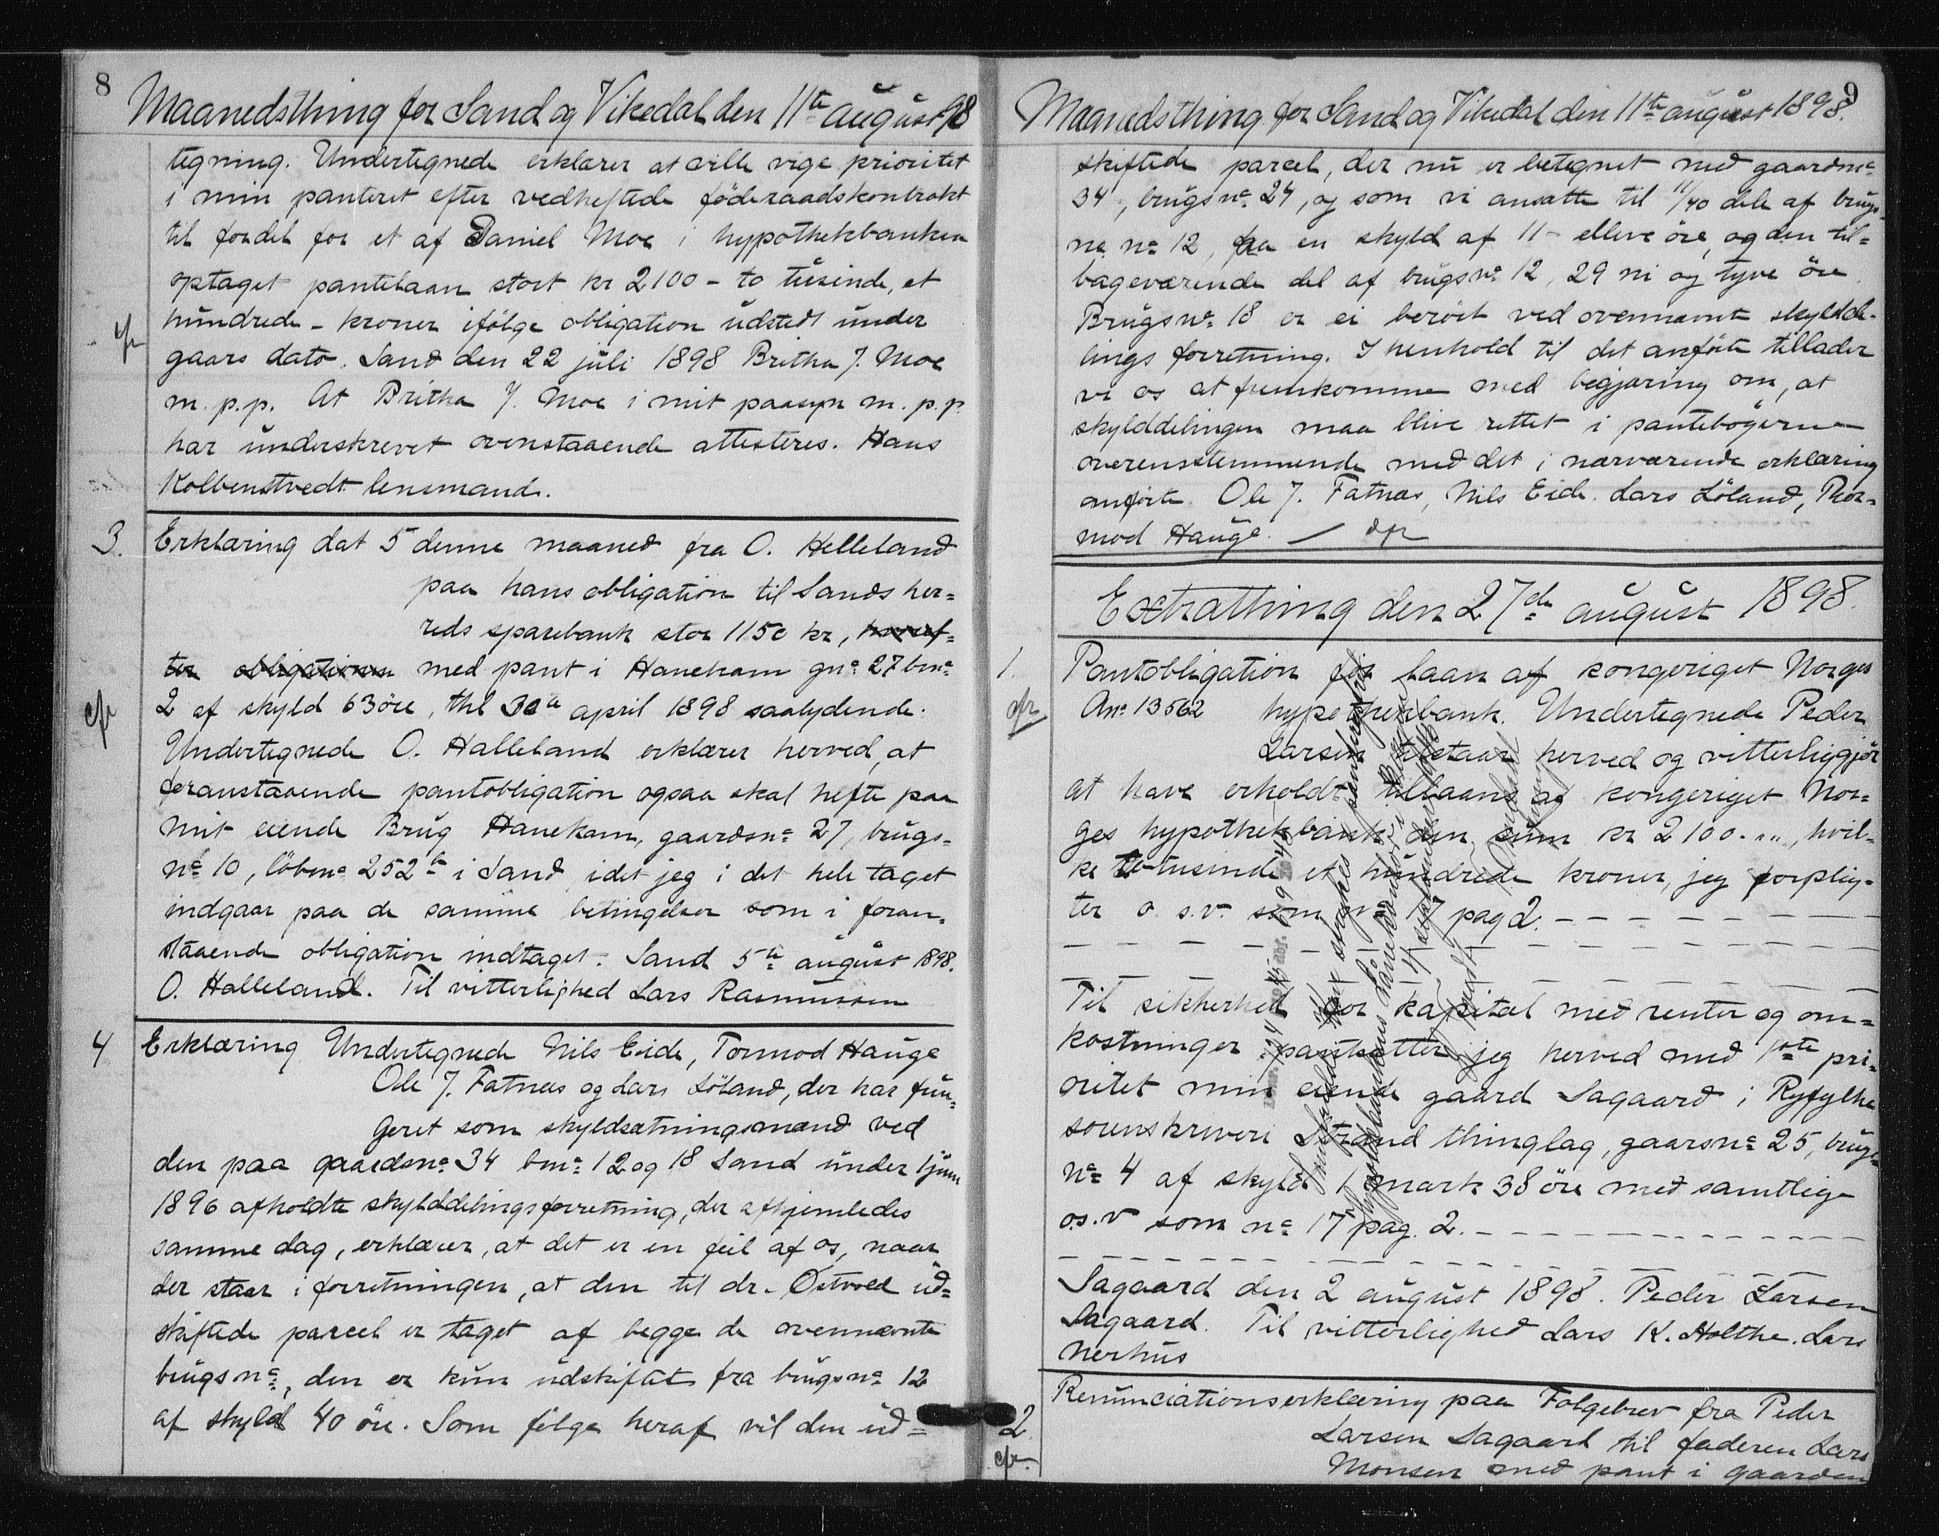 8
Maanedsthing for Sand og Vikedal den 11te august 98
tegning. Undertegnede erklærer at ville vige prioritet
i min panteret efter vedheftede föderaadskontrakt
til fordel for et af Daniel Moe i hypothekbanken
optaget pantelaan stort kr 2100 - to tusinde, et
hundrede - kroner ifölge obligation udstedt under
gaars dato. Sand den 22 juli 1898 Britha J. Moe
m. p. p. At Britha J. Moe i mit paasyn m. p. p.
har underskrevet ovenstaaende attesteres. Hans
Kolbenstvedt lensmand.
3. Erklæring dat 5 denne maaned fra O. Helleland
paa hans obligation til Sands her=
reds sparebank stor 1150 kr,
med pant i Hanekam gno 27 bno
2 af skyld 63 öre, thl 30te april 1898 saalydende.
Undertegnede O. Halleland erklærer herved, at
foranstaaende pantobligation ogsaa skal hefte paa
mit eiende Brug Hanekam, gaardsno 27, brugs-
no 10, löbeno 252b i Sand, idet jeg i det hele taget
indgaar paa de samme betingelser som i foran-
staaende obligation indtaget. Sand 5te august 1898.
O. Halleland. Til vitterlighed Lars Rasmussen
4 Erklæring Undertegnede Nils Eide, Tormod Hauge
Ole J. Fatnes og Lars Löland, der har fun-
geret som skyldsætningsmænd ved
den paa gaardsno 34 bno 12 og 18 Sand under 1 juni
1896 afholdte skylddelingsforretning, der afhjemledes
samme dag, erklærer, at det er en feil af os, naar
der staar i forretningen, at den til dr. Östvold ud=
skiftede parcel er taget af begge de ovennævnte
brugsno, den er kun udskiftet fra brugsno 12
af skyld 40 öre. Som fölge heraf vil den ud=
9
Maanedsthing for Sand og Vikedal den 11te august 1898.
skiftede parcel, der nu er betegnet med gaardsno
34, brugsno 24, og som vi ansatte til 11/40 dele af brugs-
no 12, faa en skyld af 11 - elleve öre, og den til=
bageværende del af brugsno 12, 29 ni og tyve öre
Brugsno 18 er ei berört ved ovennævnt skyldde-
lings forretning. I henhold til det anförte tillader
vi os at fremkomme med begjæring om, at
skylddelingen maa blive rettet i pantebögerne
overensstemmende med det i nærværende erklæring
anförte. Ole J. Fatnes, Nils Eide. Lars Löland, Thor-
mod Hauge.
Extrathing den 27de august 1898.
1. Pantobligation for laan af kongeriget Norges
Ano 13562 hypothekbank. Undertegnede Peder
Larsen tilstaar herved og vitterliggjör
at have erholdt tillaans af kongeriget Nor-
ges hypothekbank den sum kr 2100. „ „, hvil-
ke to tusinde et hundrede kroner jeg forplig-
ter o. s. v. som no 17 pag 2.
Til sikkerhed for kapital med renter og om=
kostninger pantsætter jeg herved med 1ste pri-
oritet min eiende gaard Sagaard i Ryfylke
sorenskriveri Strand thinglag, gaarsno 25, brugs-
no 4 af skyld 1 mark 38 öre med samtlige
o.s.v som no 17 pag. 2.
Sagaard den 2 august 1898. Peder Larsen
Sagaard. Til vitterlighed Lars K. Holthe. Lars
Nerhus
2. Renunciationserklæring paa Fölgebrev fra Peder
Larsen Sagaard til faderen Lars
Monsen med pant i gaarden